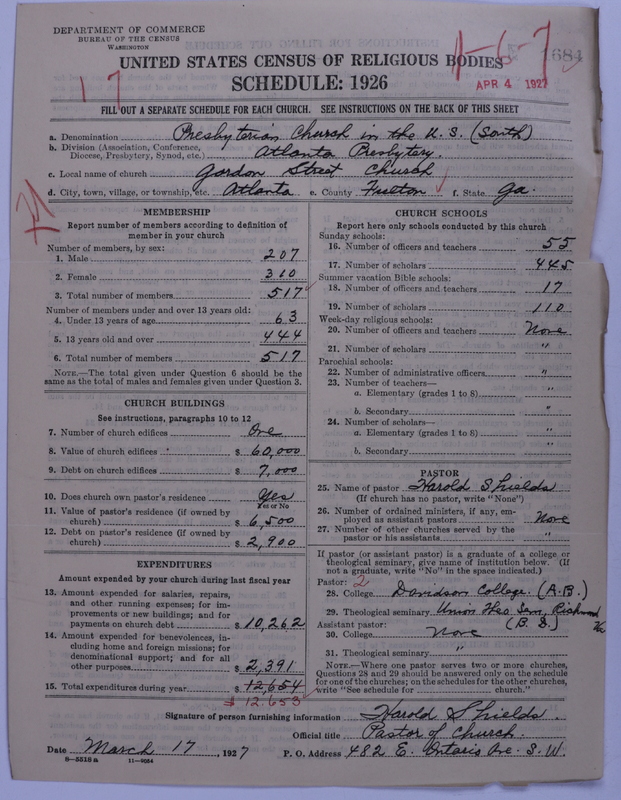 DEPARTMENT OF COMMERCE
BUREAU OF THE CENSUS
WASHINGTON
1-6-7
1684
UNITED STATES CENSUS OF RELIGIOUS BODIES
SCHEDULE: 1926
17
APR 4 1927
FILL OUT A SEPARATE SCHEDULE FOR EACH CHURCH. SEE INSTRUCTIONS ON THE BACK OF THIS SHEET
a. Denomination Presbyterian Church in the U.S. (South)
b. Division (Association, Conference, Diocese, Presbytery, Synod, etc.) Atlanta Presbytery.
c. Local name of church Gordon Street Church
d. City, town, village, or township, etc. Atlanta e. County Fulton f. State Ga.
MEMBERSHIP
Report number of members according to definition of
member in your church
Number of members, by sex:
1. Male 207
2. Female 310
3. Total number of members 517
Number of members under and over 13 years old:
4. Under 13 years of age 63
5. 13 years old and over 444
6. Total number of members 517
NOTE.—The total given under Question 6 should be
same as the total of males and females given under Question 3.
CHURCH BUILDINGS
See instructions, paragraphs 10 to 12
7. Number of church edifices One
8. Value of church edifices $ 60,000
9. Debt on church edifices $ 7,000
10. Does church own pastor's residence Yes
Yes or No
11. Value of pastor's residence (if owned by
church) $ 6,500
12. Debt on pastor's residence (if owned by
church) $ 2,900
EXPENDITURES
Amount expended by your church during last fiscal year
13. Amount expended for salaries, repairs,
and other running expenses; for im-
provements or new buildings; and for
payments on church debt $ 10,262
14. Amount expended for benevolences, in-
cluding home and foreign missions; for
denominational support; and for all
other purposes $ 2,391
15. Total expenditures during year $ 12,654
$ 12,653
CHURCH SCHOOLS
Report here only schools conducted by this church
Sunday schools:
16. Number of officers and teachers 55
17. Number of scholars 445
Summer vacation Bible schools:
18. Number of officers and teachers 17
19. Number of scholars 110
Week-day religious schools:
20. Number of officers and teachers None
21. Number of scholars "
Parochial schools:
22. Number of administrative officers "
23. Number of teachers—
a. Elementary (grades 1 to 8) "
b. Secondary "
24. Number of scholars—
a. Elementary (grades 1 to 8) "
b. Secondary "
PASTOR
25. Name of pastor Harold Shields
(If church has no pastor, write "None")
26. Number of ordained ministers, if any, em-
ployed as assistant pastors None
27. Number of other churches served by the
pastor or his assistants "
If pastor (or assistant pastor) is a graduate of a college or
theological seminary, give name of institution below. (If
not a graduate, write "No" in the space indicated.)
Pastor: 2
28. College Davidson College. (A.B.)
29. Theological seminary Union Theo Sem, Richmond Va
Assistant pastor: (B.D.)
30. College None
31. Theological seminary "
NOTE.—Where one pastor serves two or more churches,
Questions 28 and 29 should be answered only on the schedule
for one of the churches; on the schedules for the other churches,
write "See schedule for church."
Signature of person furnishing information Harold Shields.
Official title Pastor of Church.
Date March 17, 1927 P. O. Address 482 E. Ontario Ave. S.W.
8—5518 a 11—9084